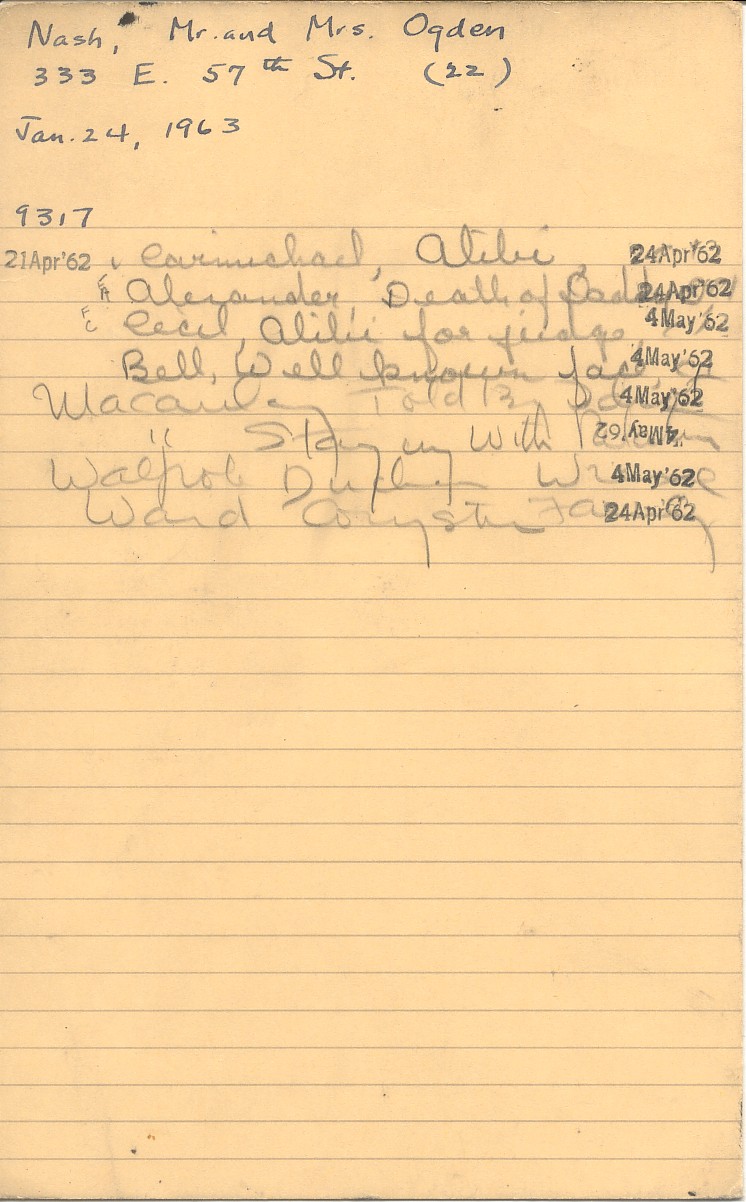 Nash, Mr. and Mrs. Ogden
333 E. 57th St. (22)
Jan. 24, 1963
9317
21Apr'62 Carmichael, Alibi 24Apr'62
Alexander, Death of 24Apr'62
Cecil, Alibi for judge 4May'62
Bell, Well known face 4May'62
Macaulay Told By 4May'62
" Staying With 4May'62
Walpole 4May'62
Ward 24Apr'62